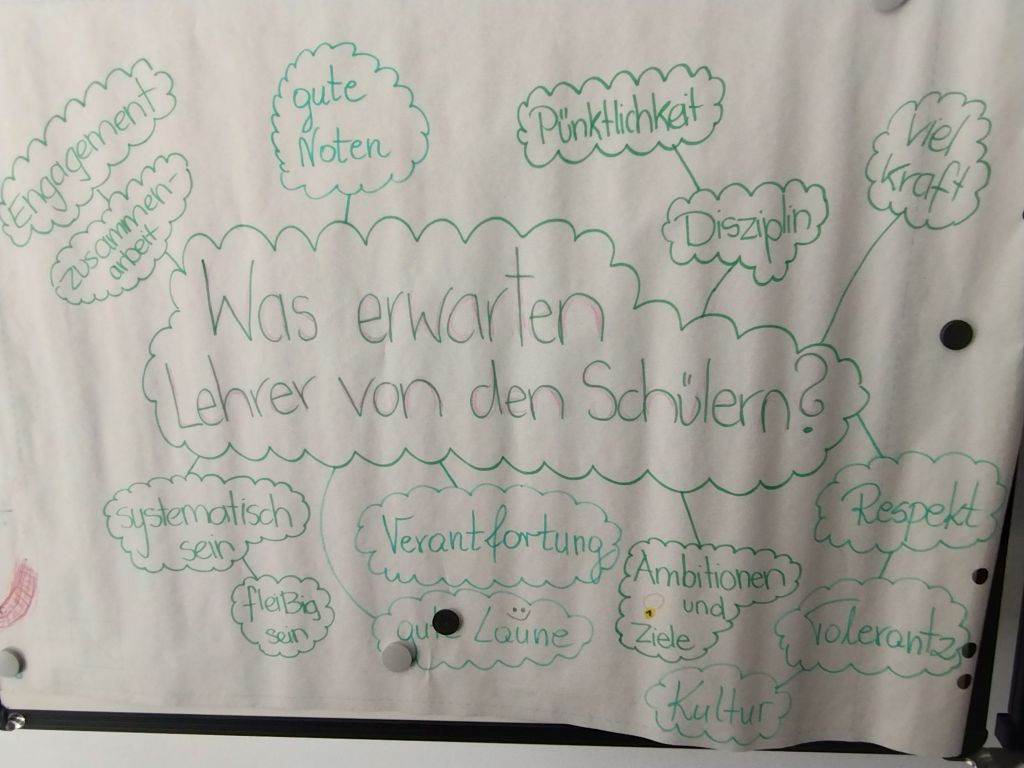 Engagement
zusammen-
arbeit
gute
Noten
Pünktlichkeit
Disziplin
Viel
kraft
Was erwarten
Lehrer von den Schülern?
systematisch
sein
fleißig
sein
Verantfortung
gute Laune
Ambitionen
und
Ziele
Respekt
Tolerantz
Kultur